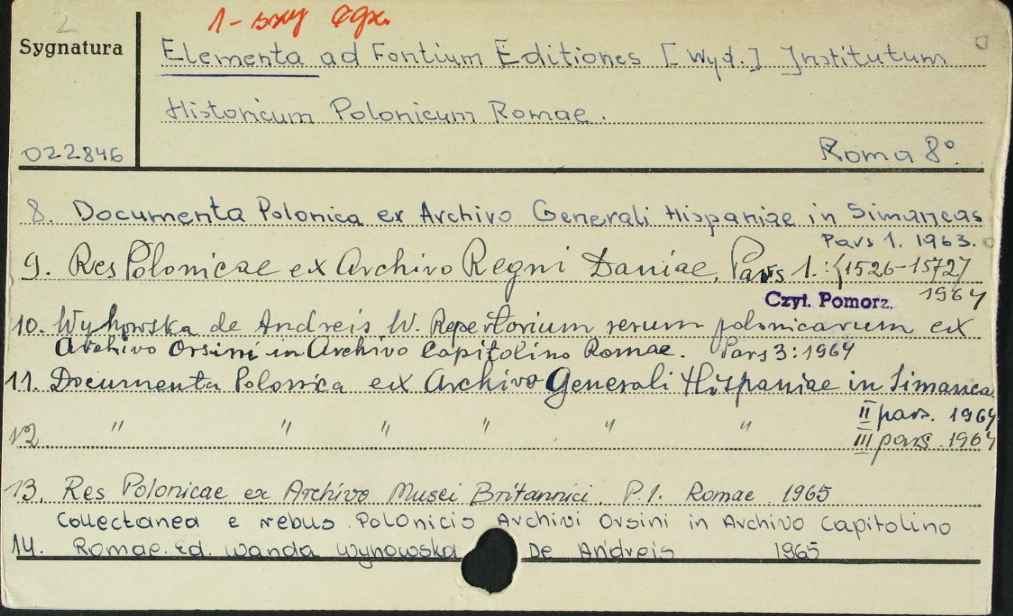 2 1-szy egz.
Sygnatura
Elementa ad Fontium Editiones [Wyd.] Institutum
Historicum Polonicum Romae.
022846 Roma 8°.
8. Documenta Polonica ex Archivo Generali Hispaniae in Simancas
Pars 1. 1963.
9. Res Polonicae ex Archivo Regni Daniae, Pars 1.: (1526-1572)
Czyt. Pomorz. 1964
10. Wyhowska de Andreis W. Repertorium rerum polonicarum ex
Archivo Orsini in Archivo Capitolino Romae. Pars 3: 1964
11. Documenta Polonica ex Archivo Generali Hispaniae in Simanca
II pars. 1964
12 " " " " " " III pars. 1964
13. Res Polonicae ex Archivo Musei Britannici P.1. Romae 1965
Collectanea e rebus Polonicis Archivi Orsini in Archivo Capitolino
14. Romae. Ed. Wanda Wyhowska De Andreis 1965